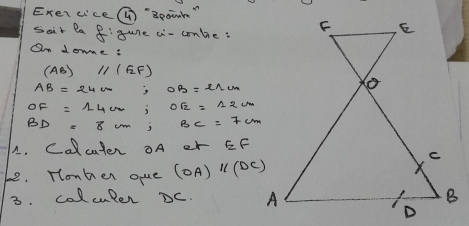 Exercice ④ "3points"
Soit la figure ci-contre :
On donne :
(AB) // (EF)
AB = 24 cm ; OB = 21 cm
OF = 14 cm ; OE = 12 cm
BD = 8 cm ; BC = 7 cm
1. Calculer OA et EF
2. Montrer que (OA) // (DC)
3. Calculer DC.
F E
O
C
A D B